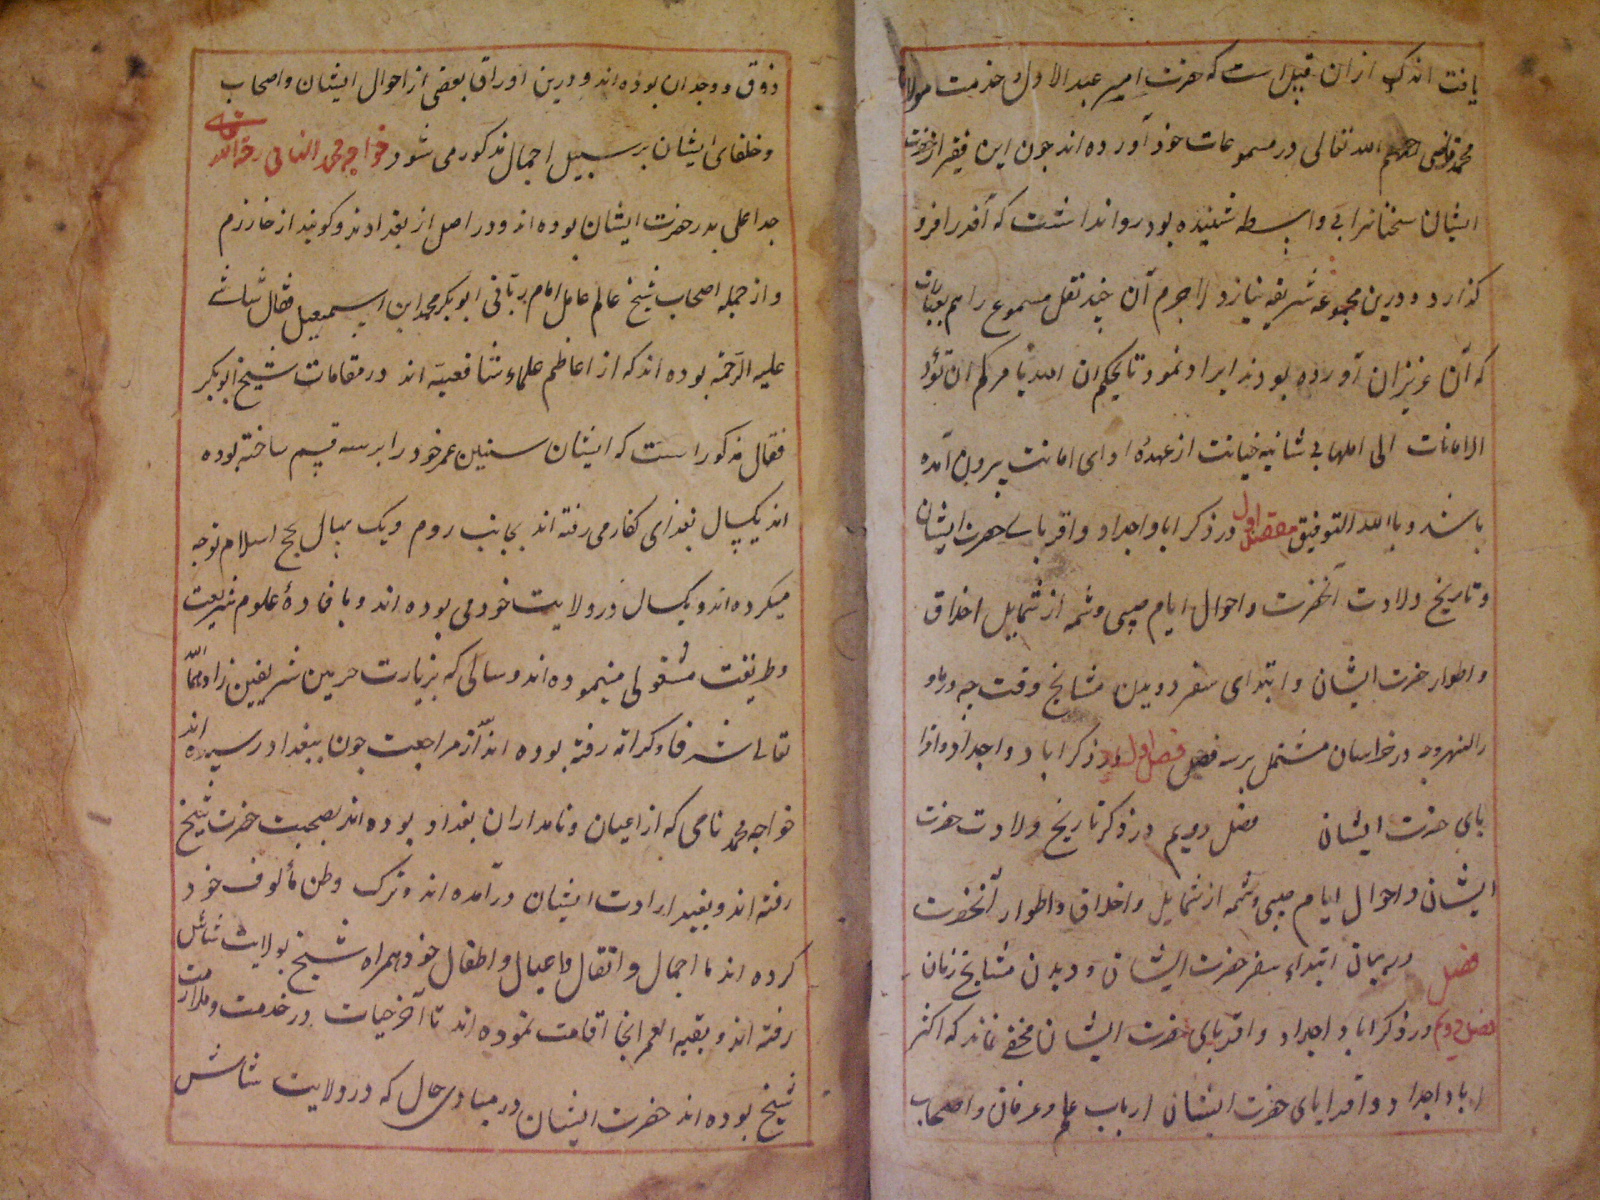 یافت اندک ازان قبیل است که حضرت امیر عبد الاول و خدمت مولانا
محمد قاضی رحمهم الله تعالی در مسموعات خود آورده اند چون این فقیر از حضرت
ایشان سخنانرا بی واسطه شنیده بود روا نداشت که آنقدر افرو
کذارد و درین مجموعه شریفه نیارد لاجرم آن چند نقل مسموع را هم بعبارت
که آن عزیزان آورده بودند ایراد نمود تا بحکم ان الله یامرکم ان تؤدوا
الامانات الی اهلها بی شائبه خیانت از عهدهٔ ادای امانت بیرون آمده
باشد و با الله التوفیق مقصد اول در ذکر ابا و اجداد و اقربای حضرت ایشان
و تاریخ ولادت آنحضرت و احوال ایام صبی و شمه از شمایل اخلاق
و اطوار حضرت ایشان و ابتدای سفر و دیدن مشایخ وقت چه در ماو
راالنهر وچه در خراسان مشتمل بر سه فصل فصل اول در ذکر ابا و اجداد و اقر
بای حضرت ایشان فصل دویم در ذکر تاریخ ولادت حضرت
ایشان و احوال ایام صبی و شمه از شمایل و اخلاق و اطوار آنحضرت
فصل در بیان ابتداء سفر حضرت ایشان و دیدن مشایخ زمان
در ذکر ابا و اجداد و اقربای حضرت ایشان مخفی نماند که اکثر
ابا و اجداد و اقربایای حضرت ایشان ارباب علم و عرفان و اصحاب
ذوق و وجدان بوده اند و درین اوراق بعضی از احوال ایشان و اصحاب
و خلفای ایشان بر سبیل اجمال مذکور می شود خواجه محمد النامی رحمة الله
جد اعلی پدر حضرت ایشان بوده اند و در اصل از بغدادند و کویند از خارزم
و از جمله اصحاب شیخ عالم عامل امام ربانی ابو بکر محمد ابن اسمعیل قفال شاشی
علیه الرحمة بوده اند که از اعاظم علماء شافعیه اند و در مقامات شیخ ابوبکر
قفال مذکور است که ایشان سنین عمر خود را بر سه قسم ساخته بوده
اند یکسال بغزای کفار می رفته اند بجانب روم و یک سال بحج اسلام توجه
میکرده اند و یکسال در ولایت خود می بوده اند و با فادهٔ علوم شریعت
و طریقت مشغولی مینموده اند و سالی که بزیارت حرمین شریفین زادهما الله
تعالی شرفا و کرامة رفته بوده اند از مراجعت چون ببغداد رسیده اند
خواجه محمد نامی که از اعیان و نامداران بغداد بوده اند بصحبت حضرت شیخ
رفته اند و بقید ارادت ایشان درآمده اند و ترک وطن مألوف خود
کرده اند با احمال و اثقال و اعیال و اطفال خود همراه شیخ بولایت شاش
رفته اند و بقیه العمر انجا اقامت نموده اند تا آخر حیات در خدمت و ملازمت
شیخ بوده اند حضرت ایشان در مبادی حال که در ولایت شاش